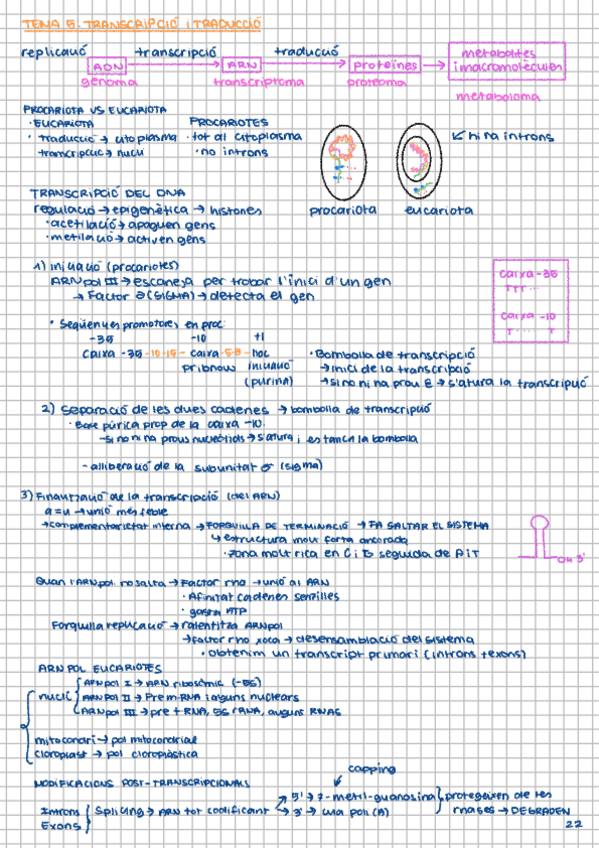 TEMA 5. TRANSCRIPCIÓ I TRADUCCIÓ
replicació transcripció traducció
ADN ARN proteïnes metabolites i macromolècules
genoma transcriptoma proteoma metaboloma
PROCARIOTA VS EUCARIOTA
· EUCARIOTA PROCARIOTES
· traducció → citoplasma · tot al citoplasma hi ha introns
transcripció → nucli · no introns
TRANSCRIPCIÓ DEL DNA
regulació → epigenètica → histones procariota eucariota
· acetilació → apaguen gens
· metilació → activen gens
1) iniciació (procariotes)
ARNpol III → escaneja per trobar l'inici d'un gen
→ Factor (SIGMA) → detecta el gen
Caixa -35
TTT...
Caixa -10
T.....T
· Seqüències promotores en proc
-35 -10 +1
Caixa -35-10-19- caixa-5-8-lloc
pribnow iniciació
(purina)
· Bombolla de transcripció
→ inici de la transcripció
→ si no hi ha prou → s'atura la transcripció
2) Separació de les dues cadenes → bombolla de transcripció
· Base púrica prop de la caixa -10.
- si no hi ha prous nucleòtids → s'atura i es tanca la bombolla
- alliberació de la subunitat σ (sigma)
3) Finalització de la transcripció (del ARN)
a=u → unió més feble
→ complementarietat interna → FORQUILLA DE TERMINACIÓ → FA SALTAR EL SISTEMA
↳ estructura molt forta ancorada
· zona molt rica en C i G seguida de A i T
OH 3'
Quan l'ARNpol. no salta → Factor rho → unió al ARN
· Afinitat cadenes senzilles
· gasta ATP
Forquilla replicació → ralentitza ARNpol
→ factor rho xoca → desensamblació del sistema
· obtenim un transcript primari (introns i exons)
ARN POL EUCARIOTES
nucli
ARNpol I → ARN ribosòmic (-5S)
ARNpol II → Pre m-RNA i alguns nuclears
ARNpol III → pre t RNA, 5S rRNA, alguns RNAS
mitocondri → pol mitocondrial
cloroplast → pol cloroplàstica
MODIFICACIONS POST-TRANSCRIPCIONALS
capping
Introns Splicing → ARN tot codificant 5' → 7-metil-guanosina protegeixen de les
Exons 3' → cua poli (A) rnases → DEGRADEN
22